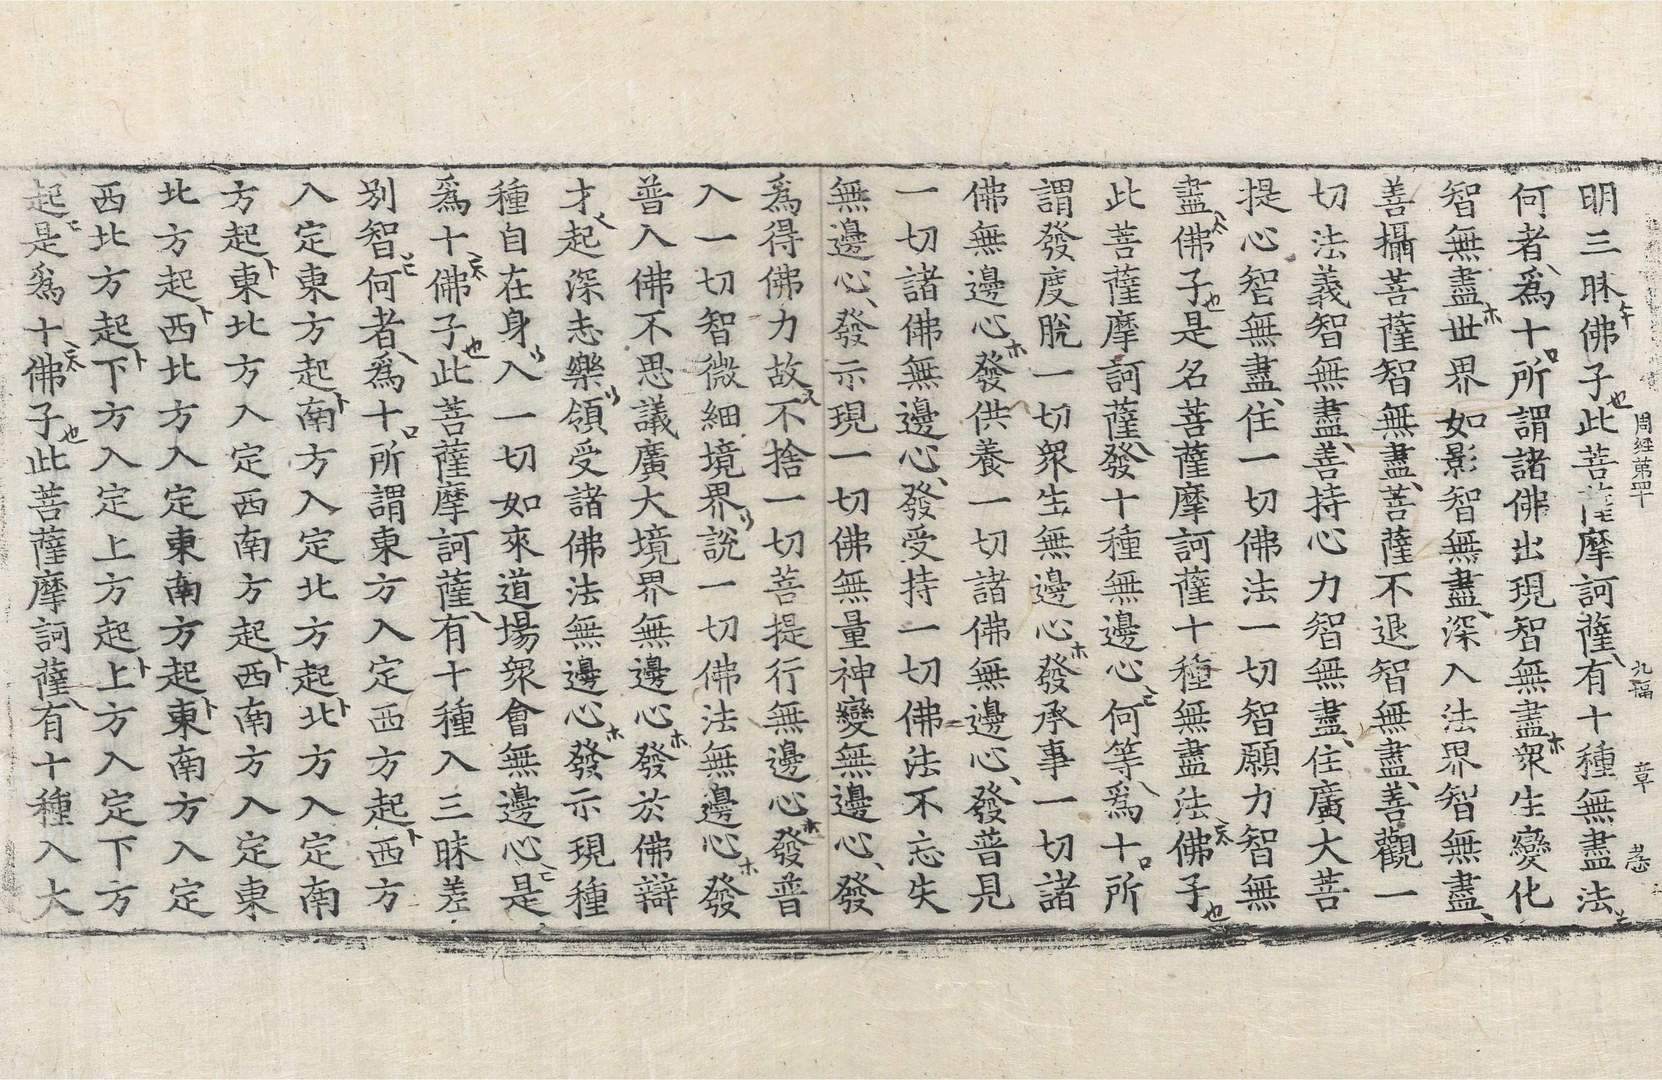 周經第四十 九楅 章
明三昧佛子此菩薩摩訶薩有十種無盡法
何者爲十所謂諸佛出現智無盡衆生變化
智無盡世界如影智無盡深入法界智無盡
善攝菩薩智無盡菩薩不退智無盡善觀一
切法義智無盡善持心力智無盡住廣大菩
提心智無盡住一切佛法一切智願力智無
盡佛子是名菩薩摩訶薩十種無盡法佛子
此菩薩摩訶薩發十種無邊心何等爲十所
謂發度脫一切衆生無邊心發承事一切諸
佛無邊心發供養一切諸佛無邊心發普見
一切諸佛無邊心發受持一切佛法不忘失
無邊心發示現一切佛無量神變無邊心發
爲得佛力故不捨一切菩提行無邊心發普
入一切智微細境界說一切佛法無邊心發
普入佛不思議廣大境界無邊心發於佛辯
才起深志樂領受諸佛法無邊心發示現種
種自在身入一切如來道場衆會無邊心是
爲十佛子此菩薩摩訶薩有十種入三昧差
別智何者爲十所謂東方入定西方起西方
入定東方起南方入定北方起北方入定南
方起東北方入定西南方起西南方入定東
北方起西北方入定東南方起東南方入定
西北方起下方入定上方起上方入定下方
起是爲十佛子此菩薩摩訶薩有十種入大